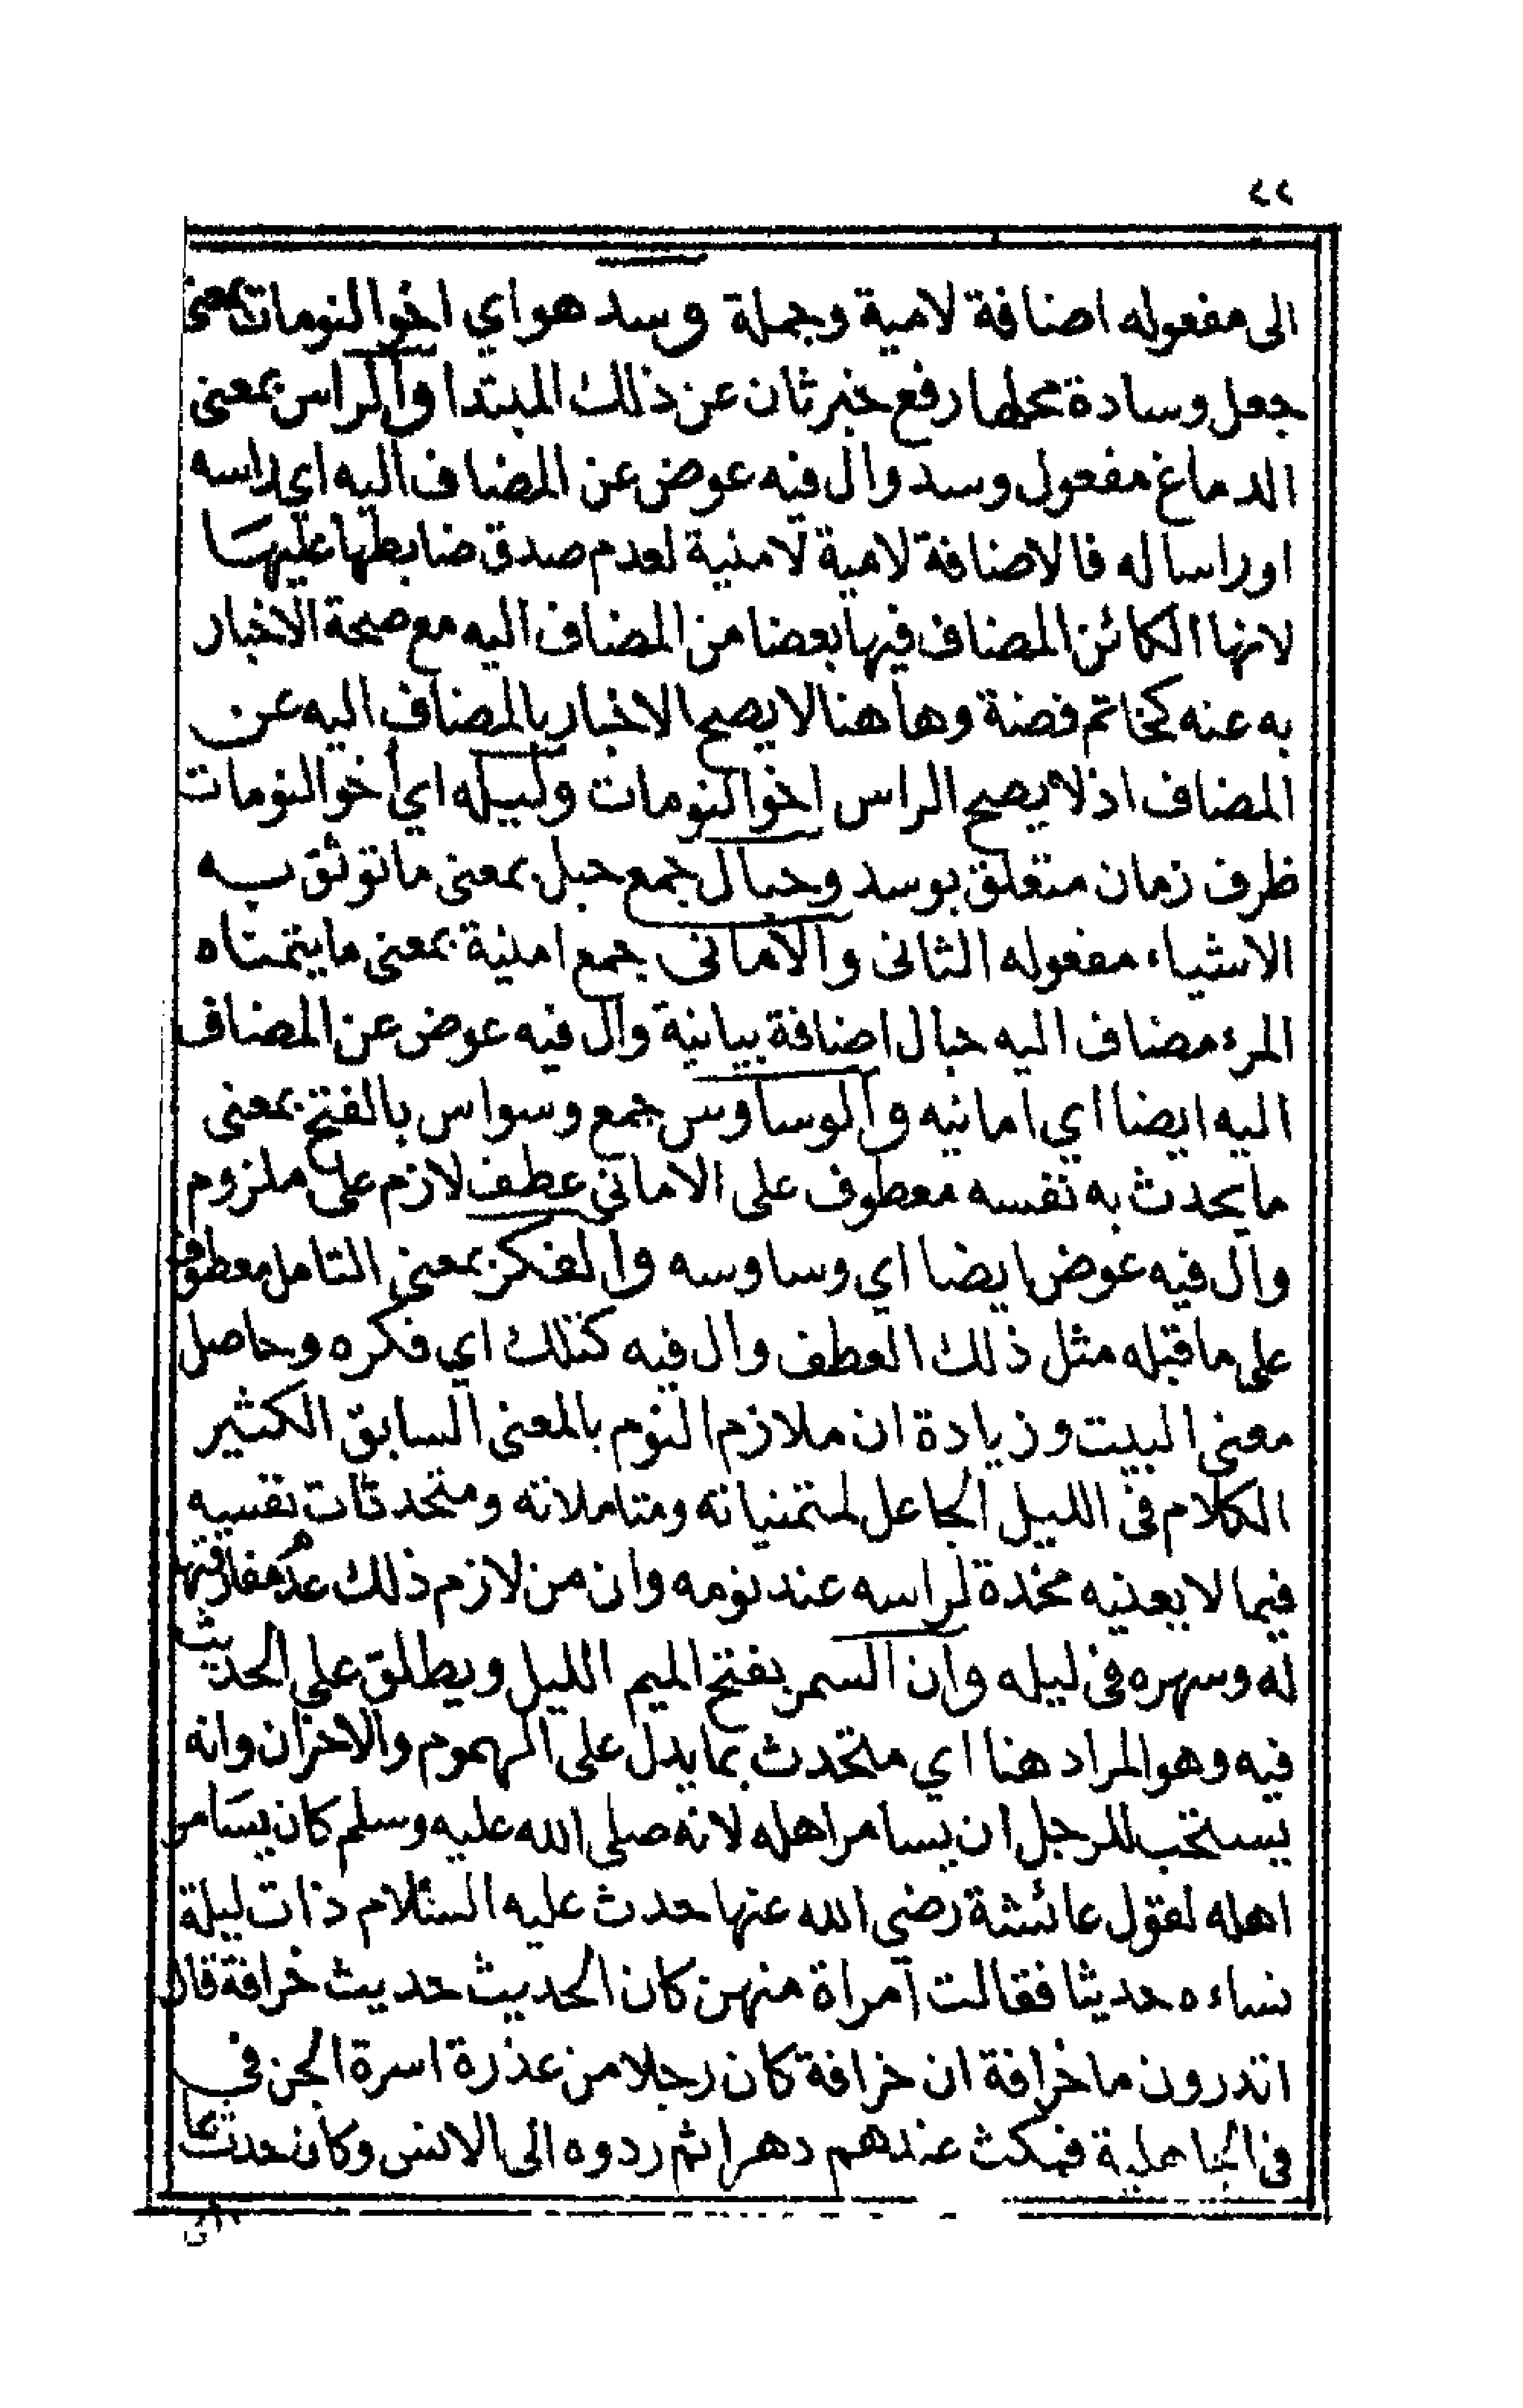 ٤٢
الى مفعوله اضافة لامية وجملة وسد هو اي اخو النومات بمعنى
جعل وسادة محلها رفع خبر ثان عن ذلك المبتدا والراس بمعنى
الدماغ مفعول وسد وال فيه عوض عن المضاف اليه اي راسه
او راسا له فالاضافة لامية لامنية لعدم صدق ضابطها عليها
لانها الكائن المضاف فيها بعضا من المضاف اليه مع صحة الاخبار
به عنه كخاتم فضة وهاهنا لا يصح الاخبار بالمضاف اليه عن
المضاف اذ لا يصح الراس اخو النومات وليله اي اخو النومات
ظرف زمان متعلق بوسد وحبال جمع حبل بمعنى ما توثق به
الاشياء مفعوله الثانى والامانى جمع امنية بمعنى ما يتمناه
المرء مضاف اليه حبال اضافة بيانية وال فيه عوض عن المضاف
اليه ايضا اي امانيه والوساوس جمع وسواس بالفتح بمعنى
ما يحدث به نفسه معطوف على الامانى عطف لازم على ملزوم
وال فيه عوض ايضا اي وساوسه والفكر بمعنى التامل معطوف
على ما قبله مثل ذلك العطف وال فيه كذلك اي فكره وحاصل
معنى البيت وزيادة ان ملازم النوم بالمعنى السابق الكثير
الكلام فى الليل الجاعل لمتمنياته ومتاملاته ومتحدثات نفسه
فيما لا يعنيه مخدة لراسه عند نومه وان من لازم ذلك عدم مفارقتها
له وسهره فى ليله وان السمر بفتح الميم الليل ويطلق على الحديث
فيه وهو المراد هنا اي متحدث بما يدل على الهموم والاحزان وانه
يستحب للرجل ان يسامر اهله لانه صلى الله عليه وسلم كان يسامر
اهله لقول عائشة رضي الله عنها حدث عليه السلام ذات ليلة
نساءه حديثا فقالت امراة منهن كان الحديث حديث خرافة قال
اتدرون ما خرافة ان خرافة كان رجلا من عذرة اسرة الجن في
فى الجاهلية فمكث عندهم دهرا ثم ردوه الى الانس وكان حدث